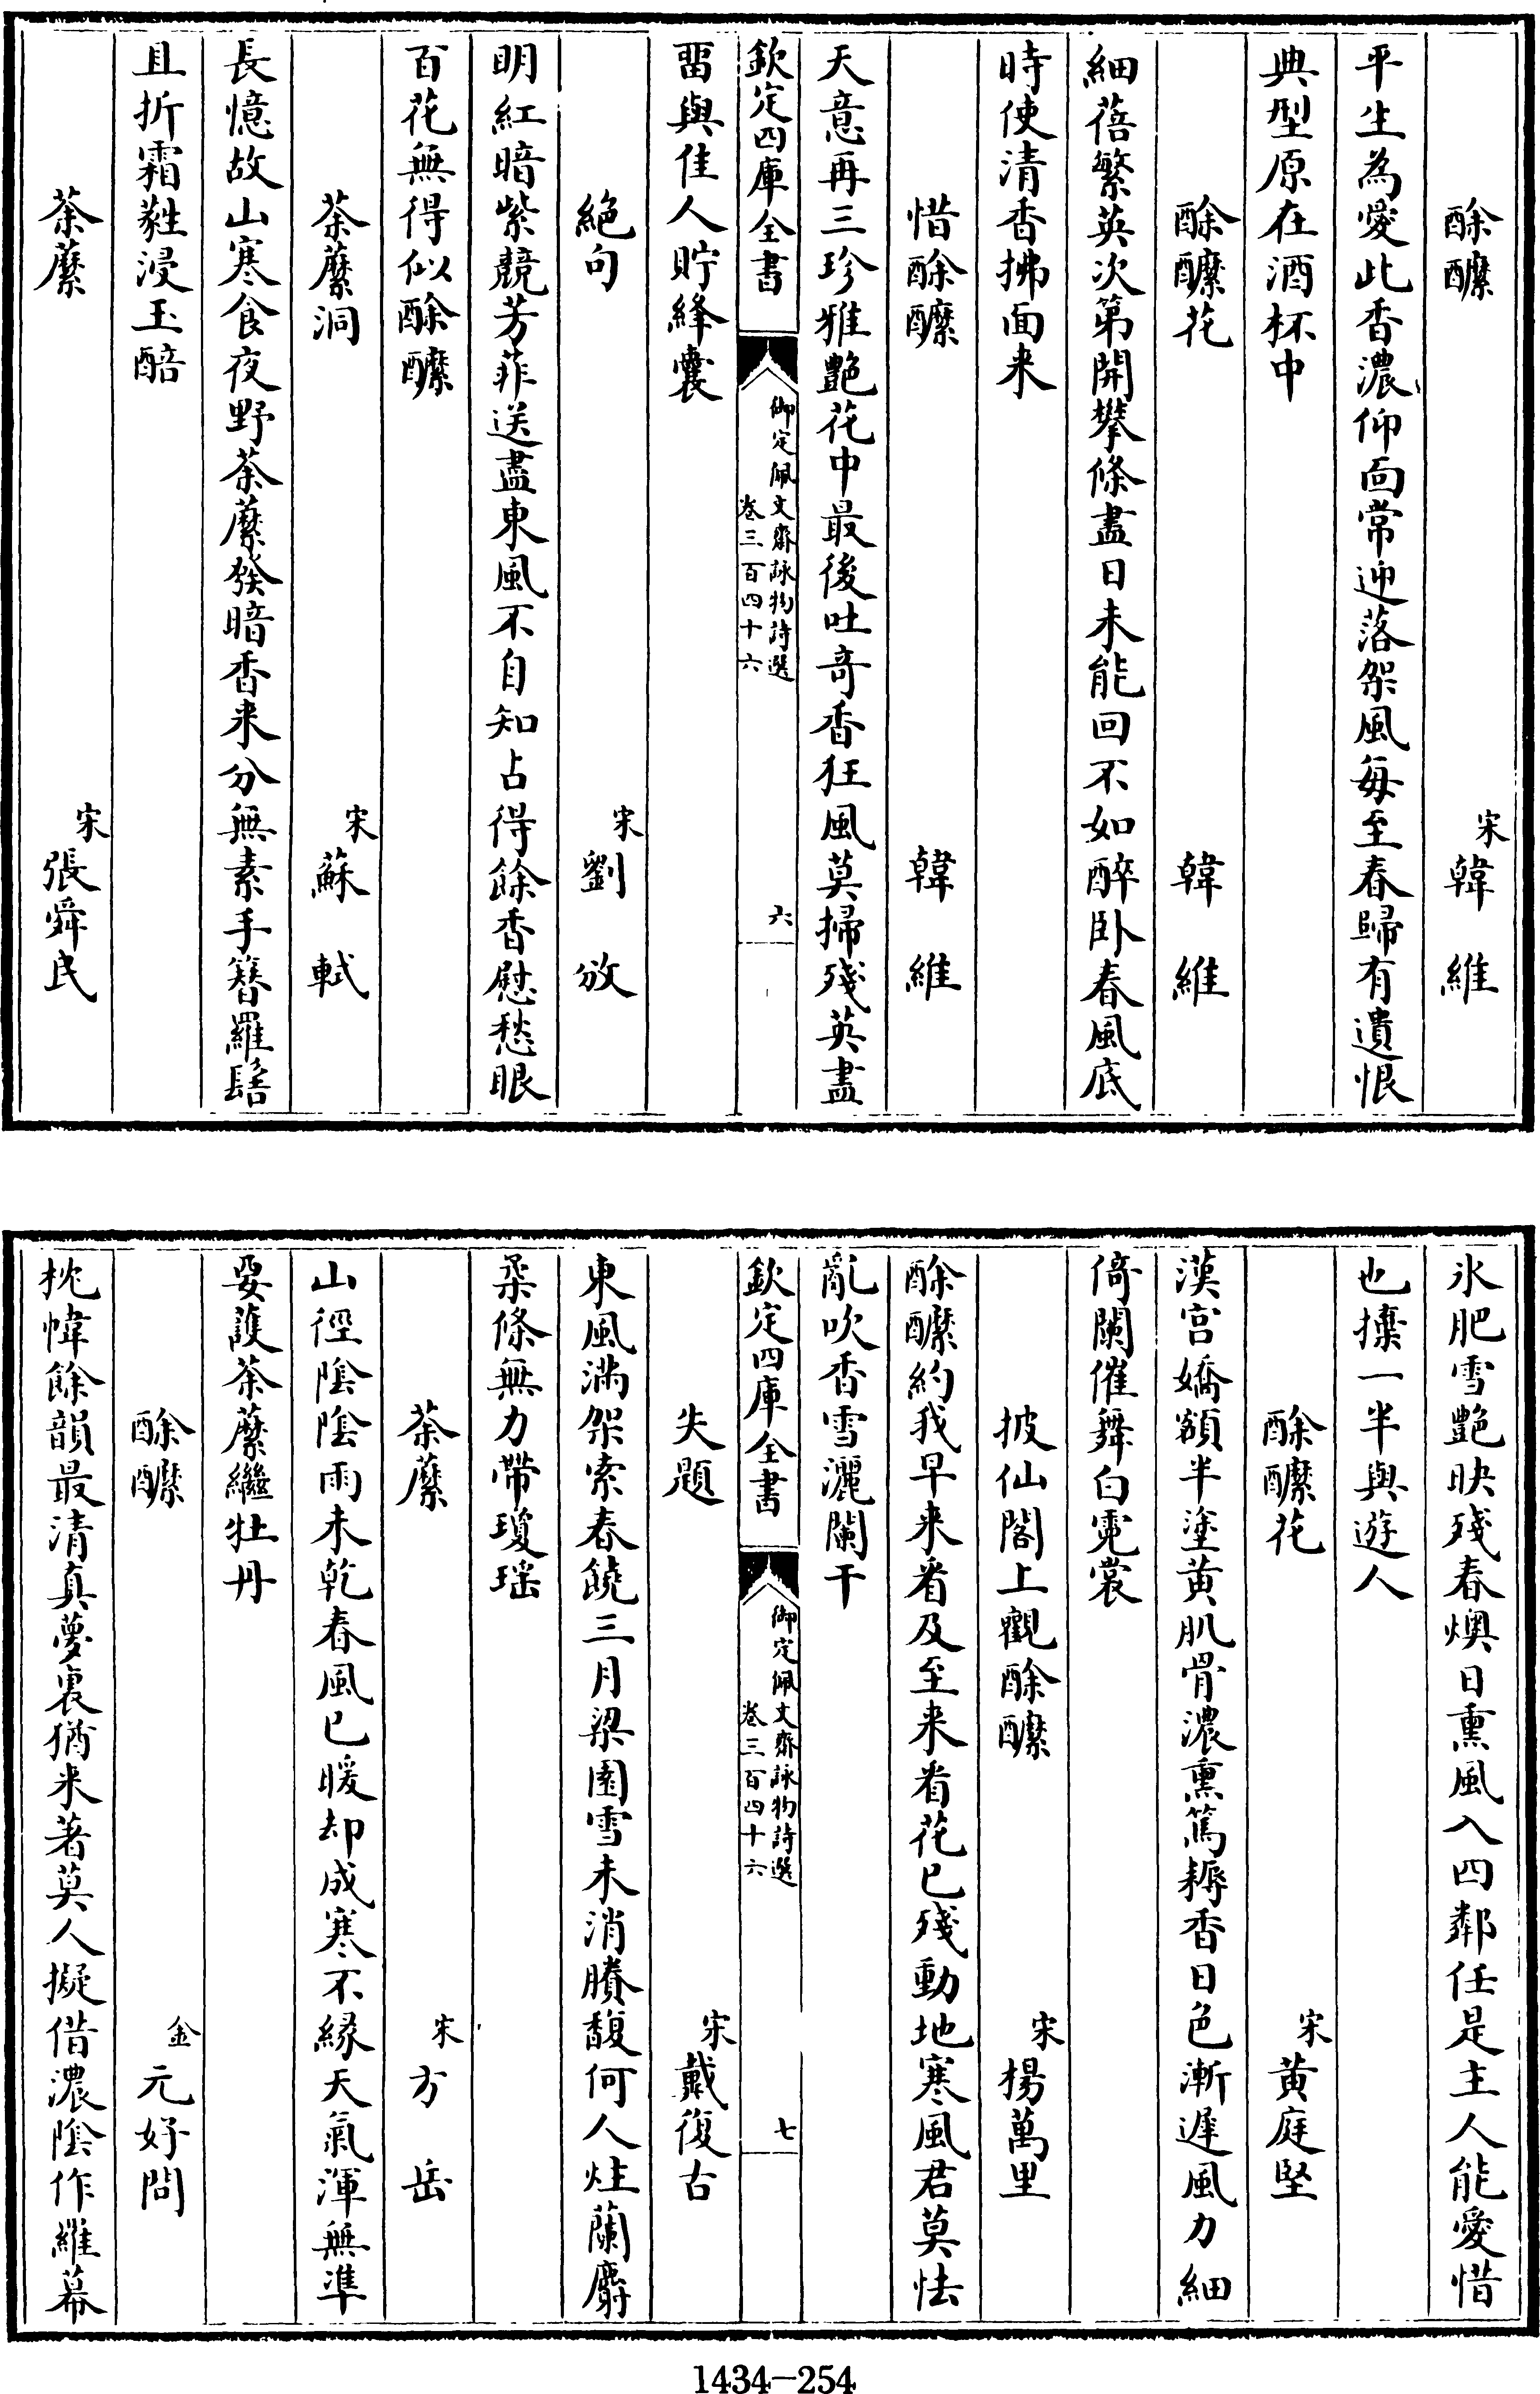 酴醾　宋韓維
平生為愛此香濃仰面常迎落架風每至春歸有遺恨
典型原在酒杯中
酴醾花　韓維
細蓓繁英次第開攀條盡日未能回不如醉卧春風底
時使清香拂面来
惜酴醾　韓維
天意再三珍雅艶花中最後吐奇香狂風莫掃殘英盡
欽定四庫全書　御定佩文齋詠物詩選　卷三百四十六　六
畱與佳人貯絳囊
絕句　宋劉攽
明紅暗紫競芳菲送盡東風不自知占得餘香慰愁眼
百花無得似酴醾
荼䕷洞　宋蘇軾
長憶故山寒食夜野荼䕷發暗香来分無素手簪羅髻
且折霜蕤浸玉醅
荼䕷　宋張舜民
氷肥雪艶映殘春燠日熏風入四鄰任是主人能愛惜
也擕一半與遊人
酴醾花　宋黄庭堅
漢宫嬌額半塗黄肌骨濃熏篤耨香日色漸遲風力細
倚闌催舞白霓裳
披仙閣上觀酴醾　宋楊萬里
酴醾約我早来看及至来看花已殘動地寒風君莫怯
亂吹香雪灑闌干
欽定四庫全書　御定佩文齋詠物詩選　卷三百四十六　七
失題　宋戴復古
東風滿架索春饒三月梁園雪未消賸馥何人炷蘭麝
柔條無力帶瓊瑤
荼䕷　宋方岳
山徑隂隂雨未乾春風已暖却成寒不緣天氣渾無凖
要護荼䕷繼牡丹
酴醾　金元好問
枕幃餘韻最清真夢裏猶来著莫人擬借濃隂作羅幕
1434-254